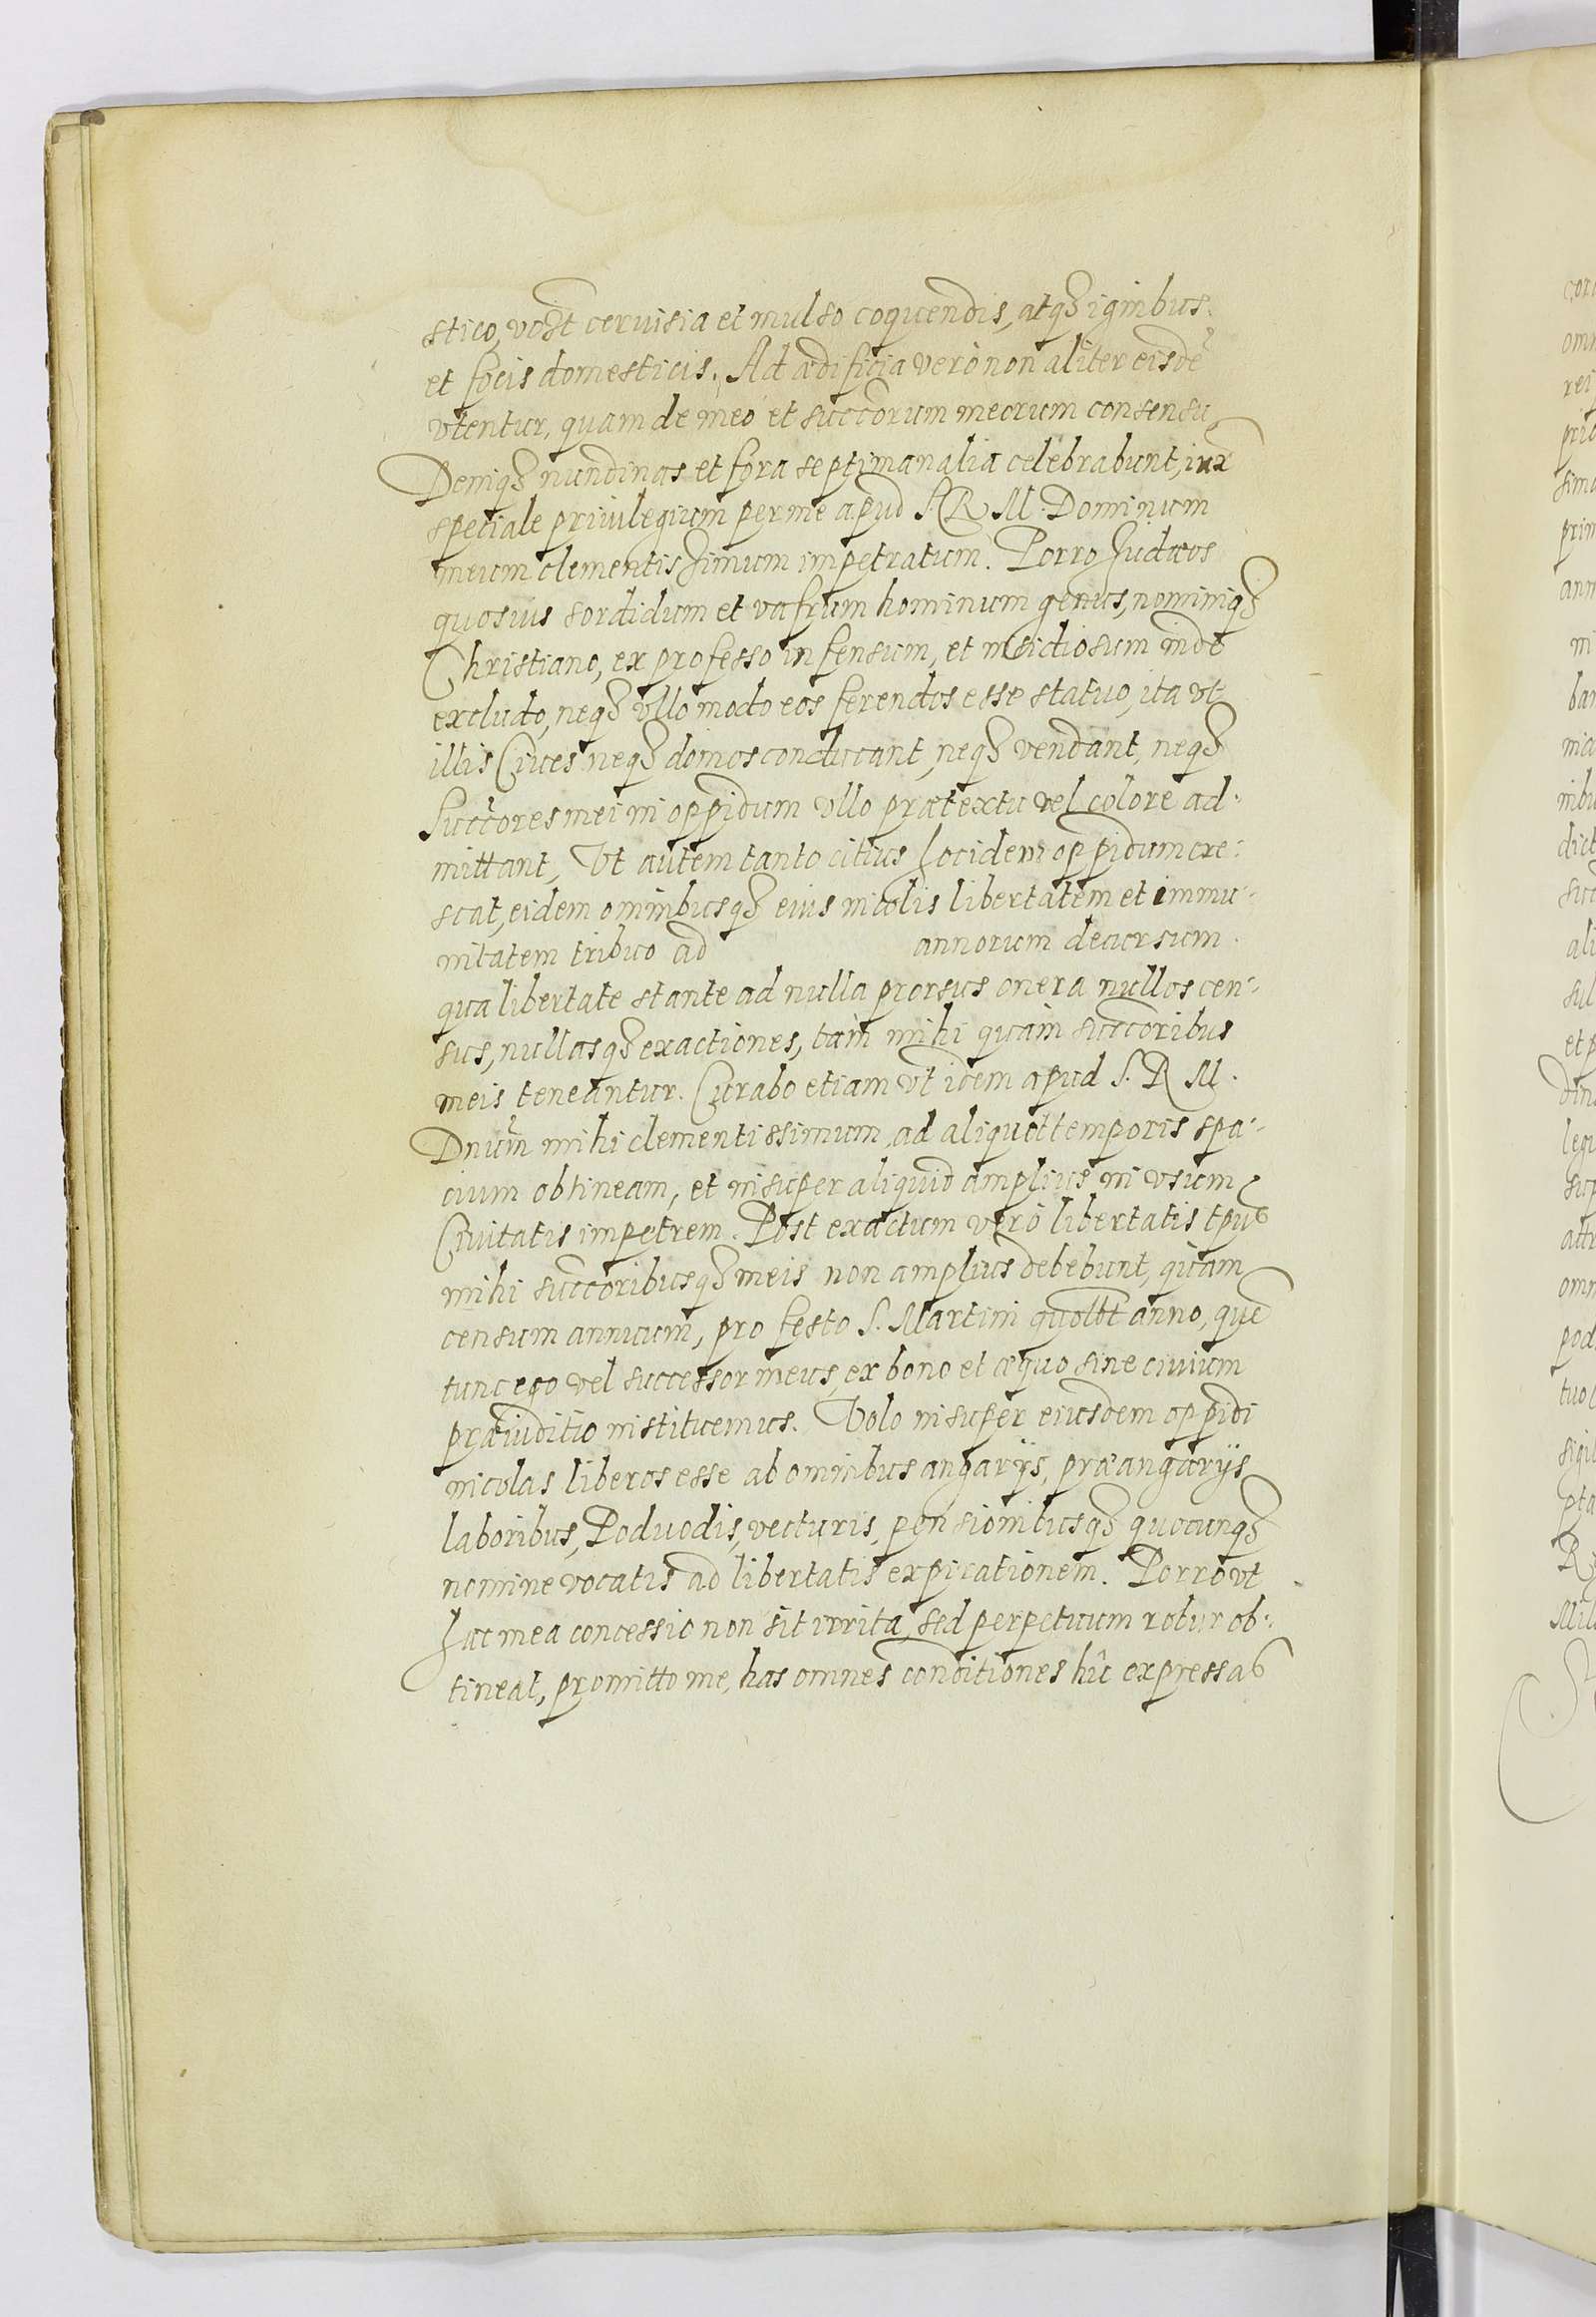 stico, vcꝫt ceruisia et mulso coquendis, atqꝫ ignibus.
et focis domesticis. Ad ædificia verò non aliter eisdē
vtentur, quam de meo et succōrum meorum consensu
Deniqꝫ nundinas et fora septimanalia celebrabunt, iux̄
speciale priuilegium per me apud S. R. M. Dominum
meum clementissimum impetratum. Porro Judæos
quosuis sordidum et vafrum hominum genus, nominiqꝫ
Christiano, ex professo infensum, et insidiosum inde
excludo, neqꝫ vllo modo eos ferendos esse statuo, ita vt
illis Ciues neqꝫ domos conducant, neqꝫ vendant, neqꝫ
Succōres mei in oppidum vllo prætextu vel colore ad-
mittant, Vt autem tanto citius hocidem oppidum cre-
scat, eidem omnibusqꝫ eius incolis libertatem et immu-
nitatem tribuo ad annorum decursum.
qua libertate stante ad nulla prorsus onera nullos cen-
sus, nullasqꝫ exactiones, tam mihi quam succōribus
meis teneantur. Curabo etiam vt idem apud S. R. M.
Dnum̄ mihi clementissimum, ad aliquot temporis spa-
cium obtineam, et insuper aliquid amplius in vsum
Ciuitatis impetrem. Post exactum verò libertatis tpus
mihi succōribusqꝫ meis non amplius debebunt, quam
censum annuum, pro festo S. Martini quolbt anno, quē
tunc ego vel successor meus, ex bono et æquo sine ciuium
præiuditio instituemus. Volo insuper eiusdem oppidi
incolas liberos esse ab omnibus angarijs, præangarijs
laboribus, Poduodis, vecturis, pensionibusqꝫ quocunqꝫ
nomine vocatis ad libertatis expirationem. Porro vt
hæc mea concessio non sit irrita, sed perpetuum robur ob-
tineat, promitto me, has omnes conditiones hîc expressas